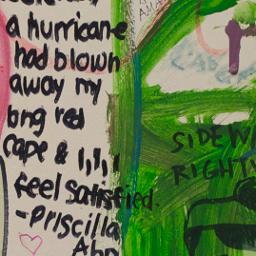 a hurricane
had blown
away my
long red
cape & I, I, I
feel satisfied.
-Priscilla
SIDEW
RIGHT